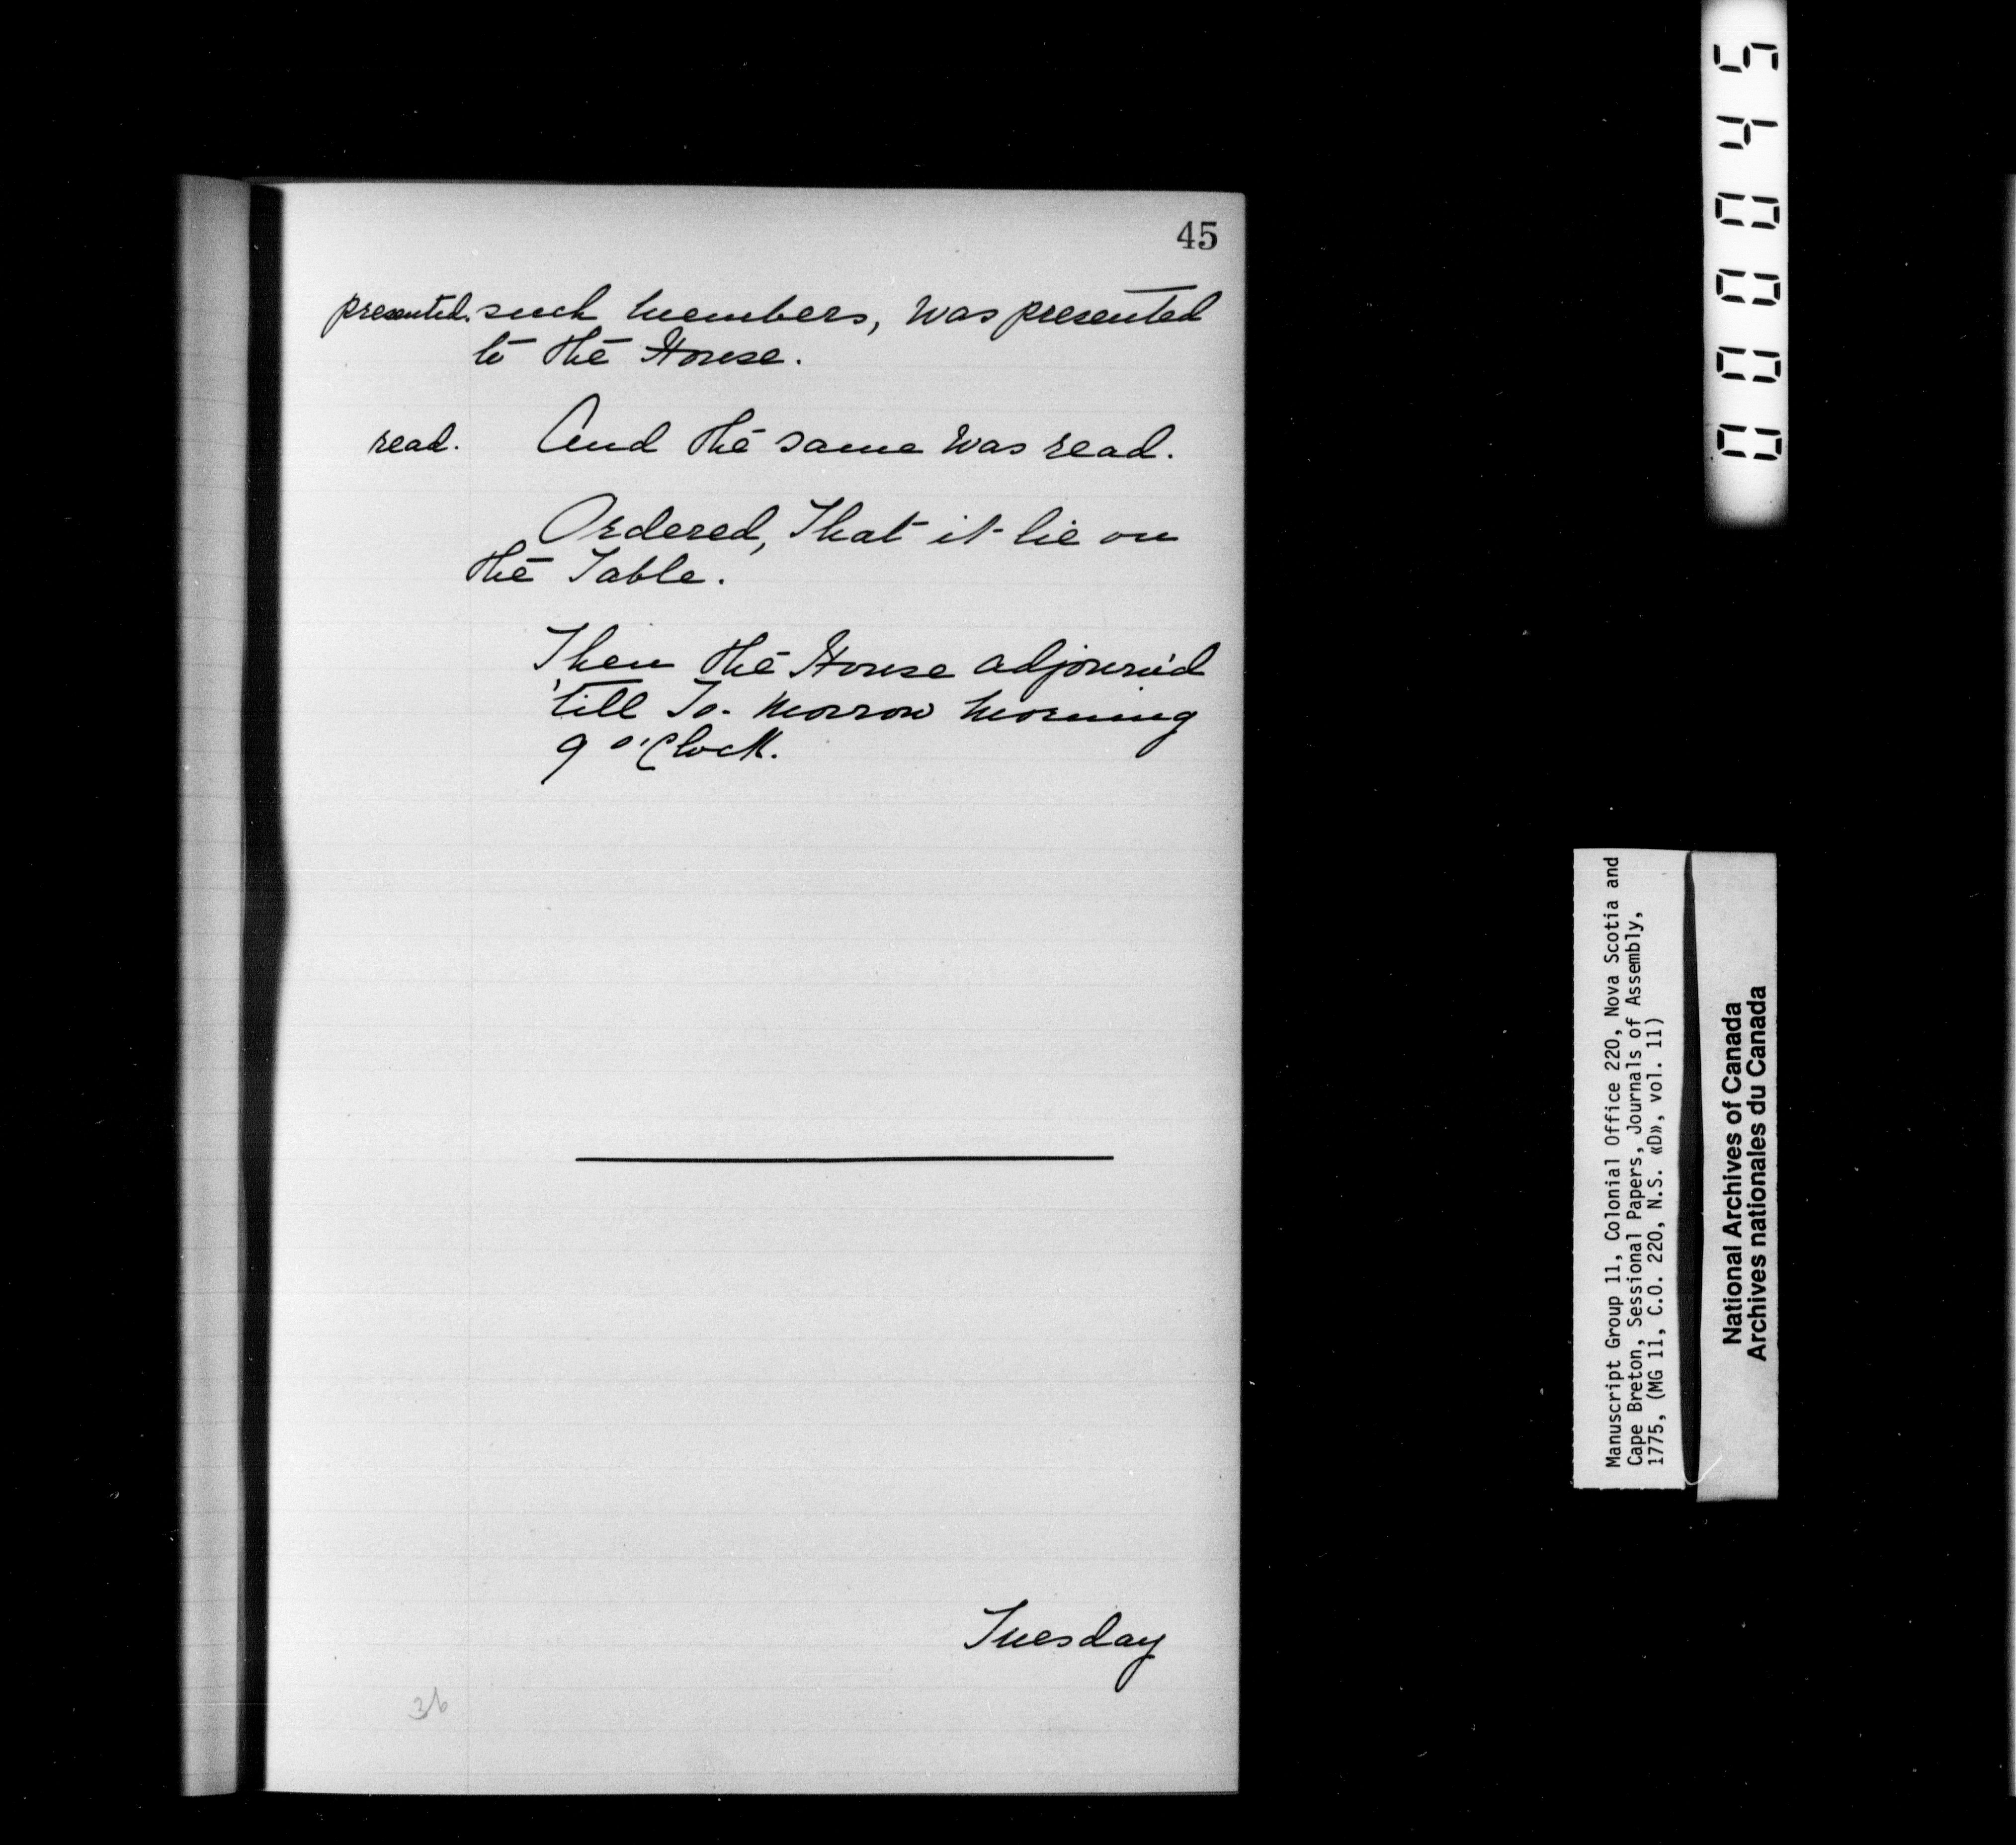 45
presented. such members, was presented
to the House.
read. And the same was read.
Ordered, That it lie on
the Table.
Then the House adjourn'd
'till To-morrow morning
9 o'Clock.
Tuesday
36
000045
Manuscript Group 11, Colonial Office 220, Nova Scotia and
Cape Breton, Sessional Papers, Journals of Assembly,
1775, (MG 11, C.O. 220, N.S. «D», vol. 11)
National Archives of Canada
Archives nationales du Canada